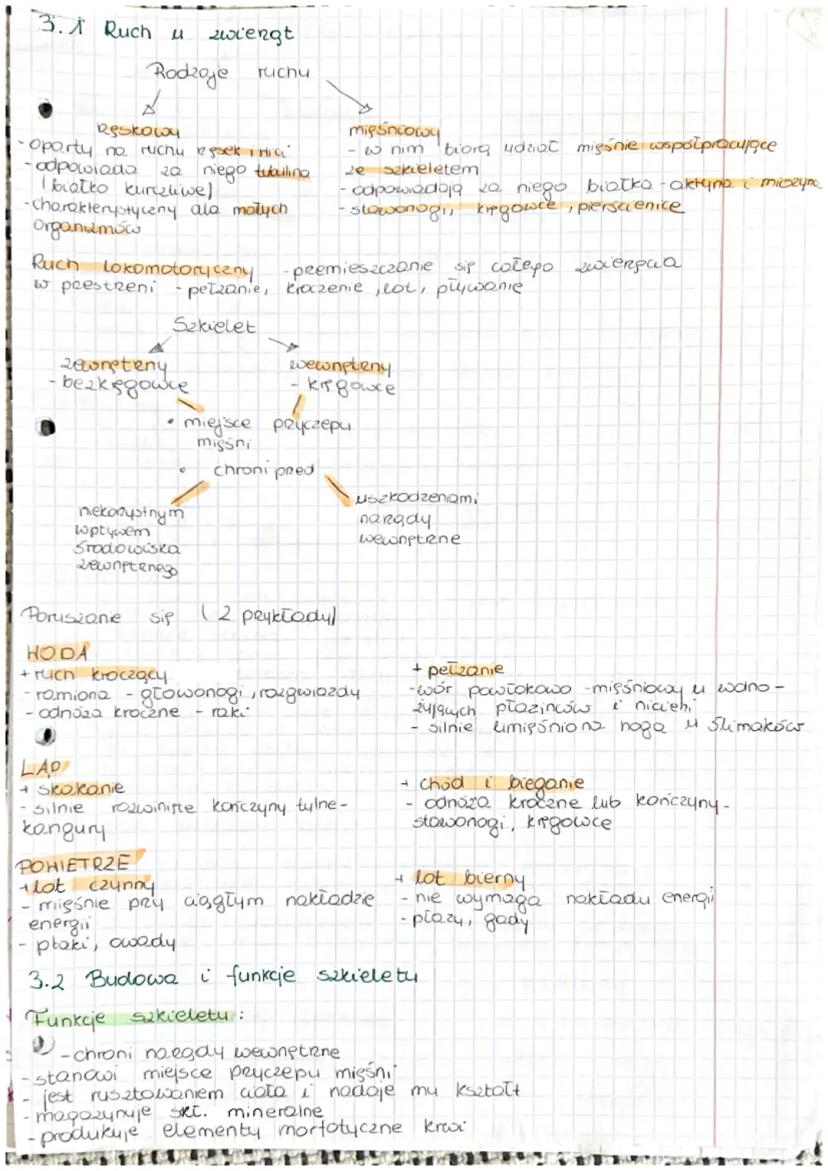 3.1 Ruch u zwierząt
Rodzaje ruchu
rzęskowy
- oparty na ruchu rzęsek i nici
- odpowiada za niego tubulina
(białko kurczliwe)
- charakterystyczny dla małych
organizmów
mięśniowy
- w nim biorą udział mięśnie współpracujące
ze szkieletem
- odpowiadają za niego białka - aktyna i miozyna
- stawonogi, kręgowce, pierścienice
Ruch lokomotoryczny - przemieszczanie się całego zwierzęcia
w przestrzeni - pełzanie, kroczenie, lot, pływanie
Szkielet
zewnętrzny
- bezkręgowce
wewnętrzny
- kręgowce
• miejsce przyczepu
mięśni
• chroni przed
niekorzystnym
wpływem
środowiska
zewnętrznego
uszkodzeniami
narządy
wewnętrzne
Poruszanie się (2 przykłady)
WODA
+ ruch kroczący
- ramiona - głowonogi, rozgwiazdy
- odnóża kroczne - raki
+ pełzanie
- wór powłokowo - mięśniowy u wodno-
żyjących płazińców i nicieni
- silnie umięśniona noga u ślimaków
LĄD
+ skakanie
- silnie rozwinięte kończyny tylne -
kangury
+ chód i bieganie
- odnóża kroczne lub kończyny -
stawonogi, kręgowce
POWIETRZE
+ lot czynny
- mięśnie przy ciągłym nakładzie
energii
- ptaki, owady
+ lot bierny
- nie wymaga nakładu energii
- płazy, gady
3.2 Budowa i funkcje szkieletu
Funkcje szkieletu:
- chroni narządy wewnętrzne
- stanowi miejsce przyczepu mięśni
- jest rusztowaniem ciała i nadaje mu kształt
- magazynuje skł. mineralne
- produkuje elementy morfotyczne krwi